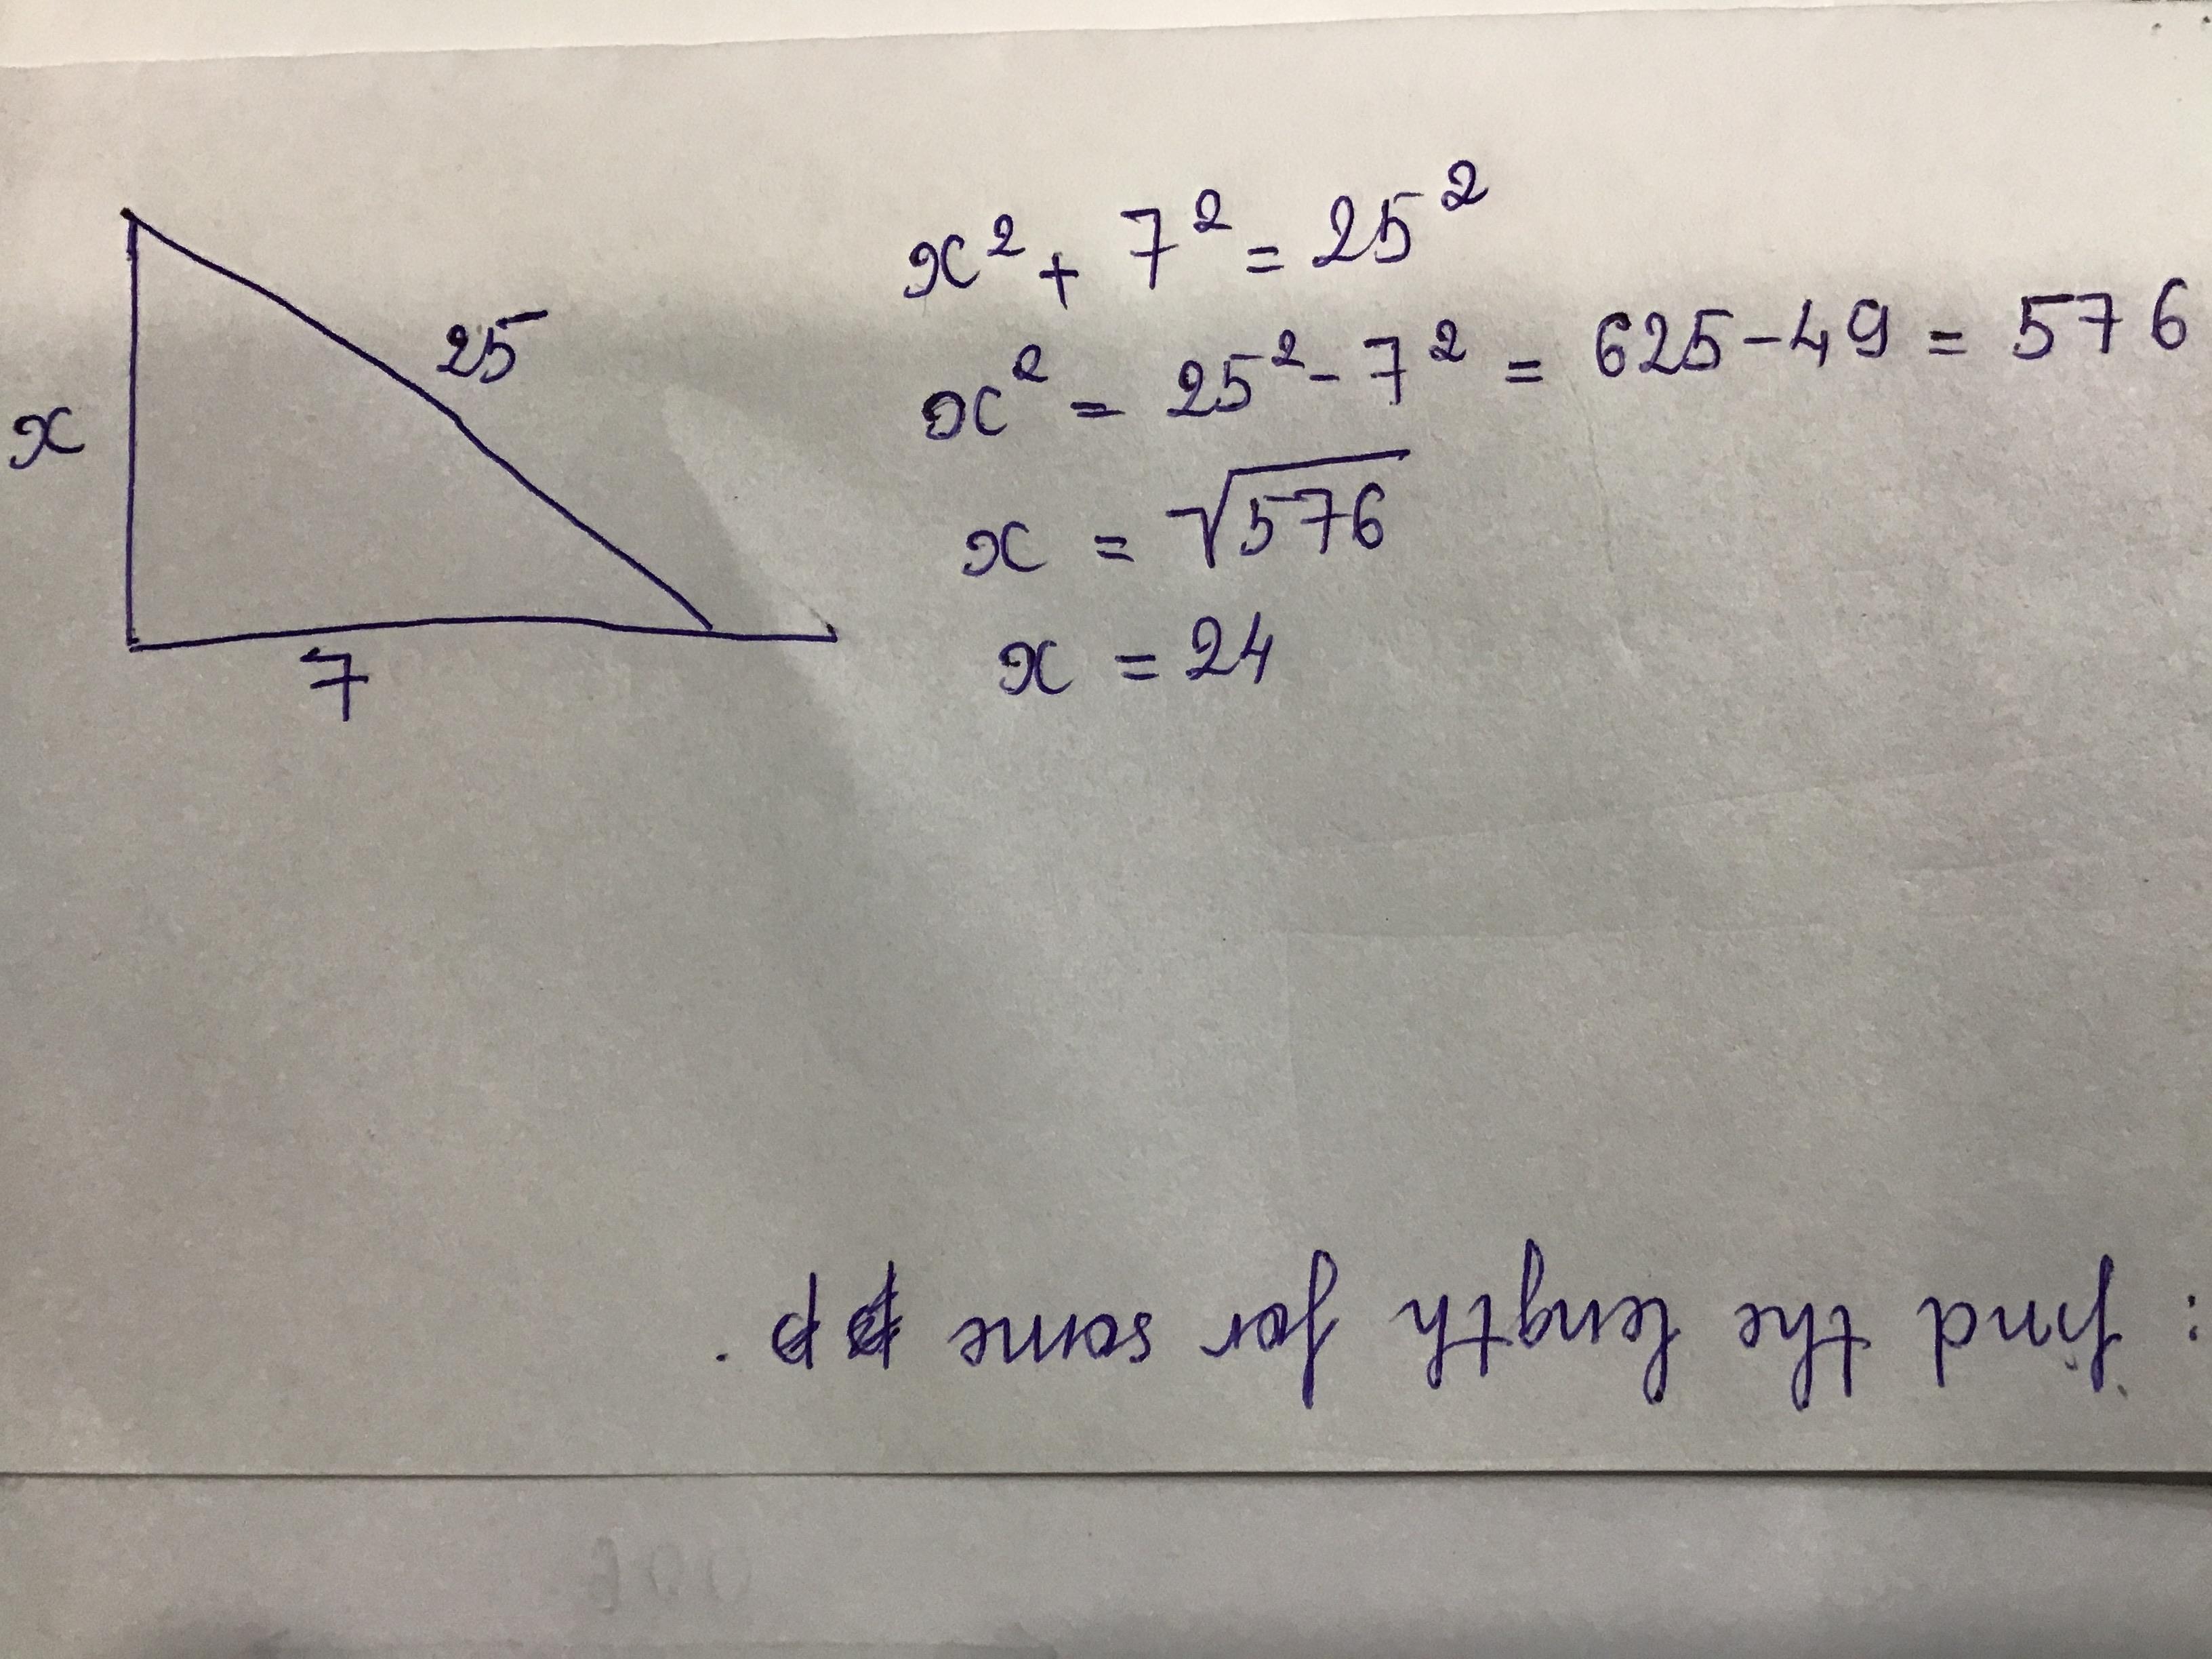 x
25
7
x² + 7² = 25²
x² = 25² - 7² = 625 - 49 = 576
x = √576
x = 24
: find the length for some p.